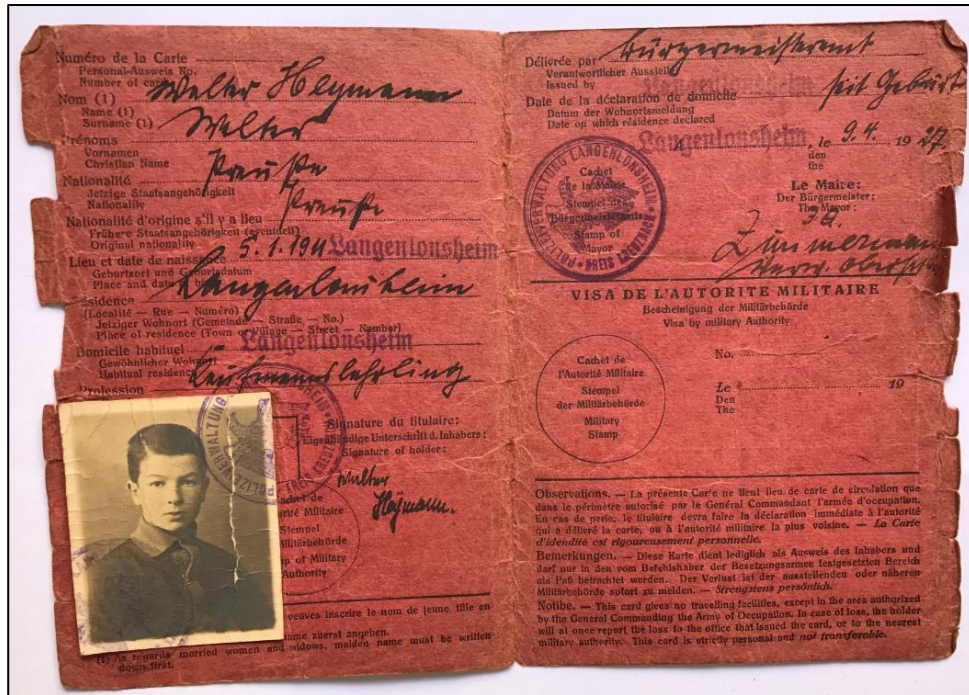 Numéro de la Carte
Personal-Ausweis No.
Number of card
Walter Heymann
Nom (1)
Name (1)
Surname (1)
Walter
Prénoms
Vornamen
Christian Name
Preuße
Nationalité
Jetzige Staatsangehörigkeit
Nationality
Preuße
Nationalité d'origine s'il y a lieu
Frühere Staatsangehörigkeit (eventuell)
Original nationality
5.1.1911 Langenlonsheim
Lieu et date de naissance
Geburtsort und Geburtsdatum
Place and date
Langenlonsheim
Résidence
(Localité — Rue — Numéro)
Jetziger Wohnort (Gemeinde — Straße — No.)
Place of residence (Town or Village — Street — Number)
Langenlonsheim
Domicile habituel
Gewöhnlicher
Habitual residence
Kaufmannslehrling
Profession
POLIZEIVERWALTUNG
KREIS KREUZNACH
Signature du titulaire:
Eigenhändige Unterschrift d. Inhabers:
Signature of holder:
Walter
Heymann.
Cachet de
Militaire
Stempel
Militärbehörde
of Military
Authority
veuves inscrire le nom de jeune fille en
name zuerst angeben.
(1) As regards married women and widows, maiden name must be written
down first.
Bürgermeisteramt
Délivrée par
Verantwortlicher Aussteller
Issued by
Langenlonsheim
seit Geburt
Date de la déclaration de domicile
Datum der Wohnortsmeldung
Date on which résidence declared
Langenlonsheim, le 9.4. 1927.
den
the
POLIZEIVERWALTUNG LANGENLONSHEIM
KREIS KREUZNACH
Cachet
de la Mairie
Stempel des
Bürgermeisteramts
Stamp of
Mayor
Le Maire:
Der Bürgermeister:
The Mayor:
Zimmermann
VISA DE L'AUTORITE MILITAIRE
Bescheinigung der Militärbehörde
Visa by military Authority
Cachet de
l'Autorité Militaire
Stempel
der Militärbehörde
Military
Stamp
No.
Le 19
Den
The
Observations. — La présente Carte ne tient lieu de carte de circulation que
dans le périmètre autorisé par le Général Commandant l'armée d'occupation.
En cas de perte, le titulaire devra faire la déclaration immédiate à l'autorité
qui a délivré la carte, ou à l'autorité militaire la plus voisine. — La Carte
d'idendité est rigoureusement personnelle.
Bemerkungen. — Diese Karte dient lediglich als Ausweis des Inhabers und
darf nur in den vom Befehlshaber der Besetzungsarmee festgesetzten Bereich
als Paß betrachtet werden. Der Verlust ist der ausstellenden oder näheren
Militärbehörde sofort zu melden. — Strengstens persönlich.
Notibe. — This card gives no travelling facilities, except in the area authorized
by the General Commanding the Army of Occupation. In case of loss, the holder
will at once report the loss to the office that issued the card, or to the nearest
military authority. This card is strictly personal and not transferable.